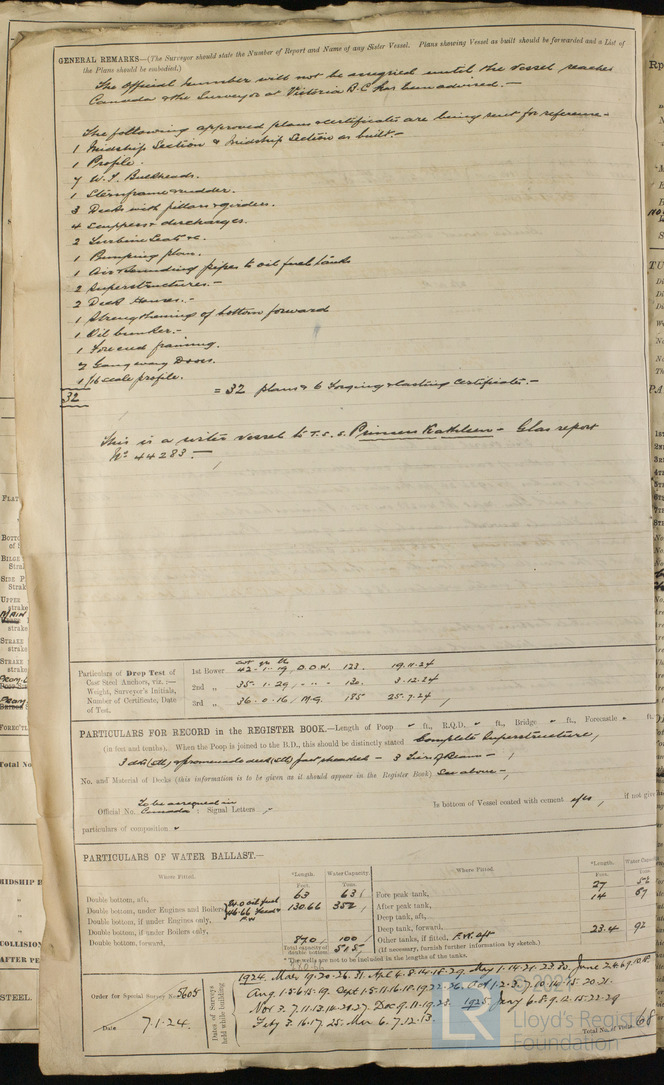 GENERAL REMARKS—(The Surveyor should state the Number of Report and Name of any Sister Vessel. Plans showing Vessel as built should be forwarded and a List of
the Plans should be embodied.)
The official number will not be assigned until the vessel reaches
Canada & the Surveyor at Victoria B.C. has been advised.—
The following approved plans & certificates are being sent for reference—
1 Midship Section & Midship Section as built.—
1 Profile.
7 W.T. Bulkheads.
1 Sternframe & rudder.
3 Decks with pillars & girders.
4 Scuppers & discharges.
2 Turbine Seats &c.
1 Pumping plan.
1 Air & Sounding pipes to oil fuel tanks
2 Superstructures.—
2 Deck Houses.—
1 Strengthenings of bottom forward
1 Oil bunker.—
1 Fore end framing.
2 Gangway Doors.
1 1/16 scale profile.
32 = 32 plans & 6 Forging & Casting Certificates.—
This is a sister vessel to T.S.S. Princess Kathleen — Glas report
No 44283.—
Particulars of Drop Test of
Cast Steel Anchors, viz.:—
Weight, Surveyor's Initials,
Number of Certificate, Date
of Test.
cwt qr lb
1st Bower 42 . 1 . 19, D.O.W. 123. 19.11.24
2nd „ 35 . 1 . 29, " " " 130. 3.12.24
3rd „ 36 . 0 . 16, M.G. 185 25.7.24
PARTICULARS FOR RECORD in the REGISTER BOOK.—Length of Poop " ft., R.Q.D. " ft., Bridge " ft., Forecastle " ft.
(in feet and tenths). When the Poop is joined to the B.D., this should be distinctly stated Complete Superstructure,
3 dks (stl) & promenade deck (stl) part sheathed — 3
No. and Material of Decks (this information is to be given as it should appear in the Register Book) See above —
Official No. To be assigned in Canada ; Signal Letters
Is bottom of Vessel coated with cement yes, if not give
particulars of composition
PARTICULARS OF WATER BALLAST.—
Where Fitted. *Length. Water Capacity Where Fitted. *Length. Water Capacity
Feet. Tons Feet. Tons
Double bottom, aft, 63 63 Fore peak tank, 27 52
Double bottom, under Engines and Boilers, 130.66 352 After peak tank, 14 67
Double bottom, if under Engines only, Deep tank, aft,
Double bottom, if under Boilers only, Deep tank, forward,
Double bottom, forward, 87.0 100 Other tanks, if fitted, F.W. aft 23.4 92
Total capacity of double bottom 515 (If necessary, furnish further information by sketch.)
*The wells are not to be included in the lengths of the tanks.
Order for Special Survey No. 5605
Date 7.1.24.
Dates of Surveys held while building
1924. Mar 19.20.26.31 Apl 4.8.14.18.29. May 1.14.21.23.30. June 2.4.6.9.10.18
Aug 1.5.6.15.19. Sept 1.5.11.16.18.19.22.26. Oct 1.2.3.7.10.14.15.20.21.
Nov 3.7.11.13.14.20.27. Dec 9.11.19.23. 1925 Jany 6.8.9.12.15.22.29
Feby 3.16.17.25. Mar 6.7.12.13.
Total No. of Visits 68
© 2021
LR
Lloyd's Register
Foundation